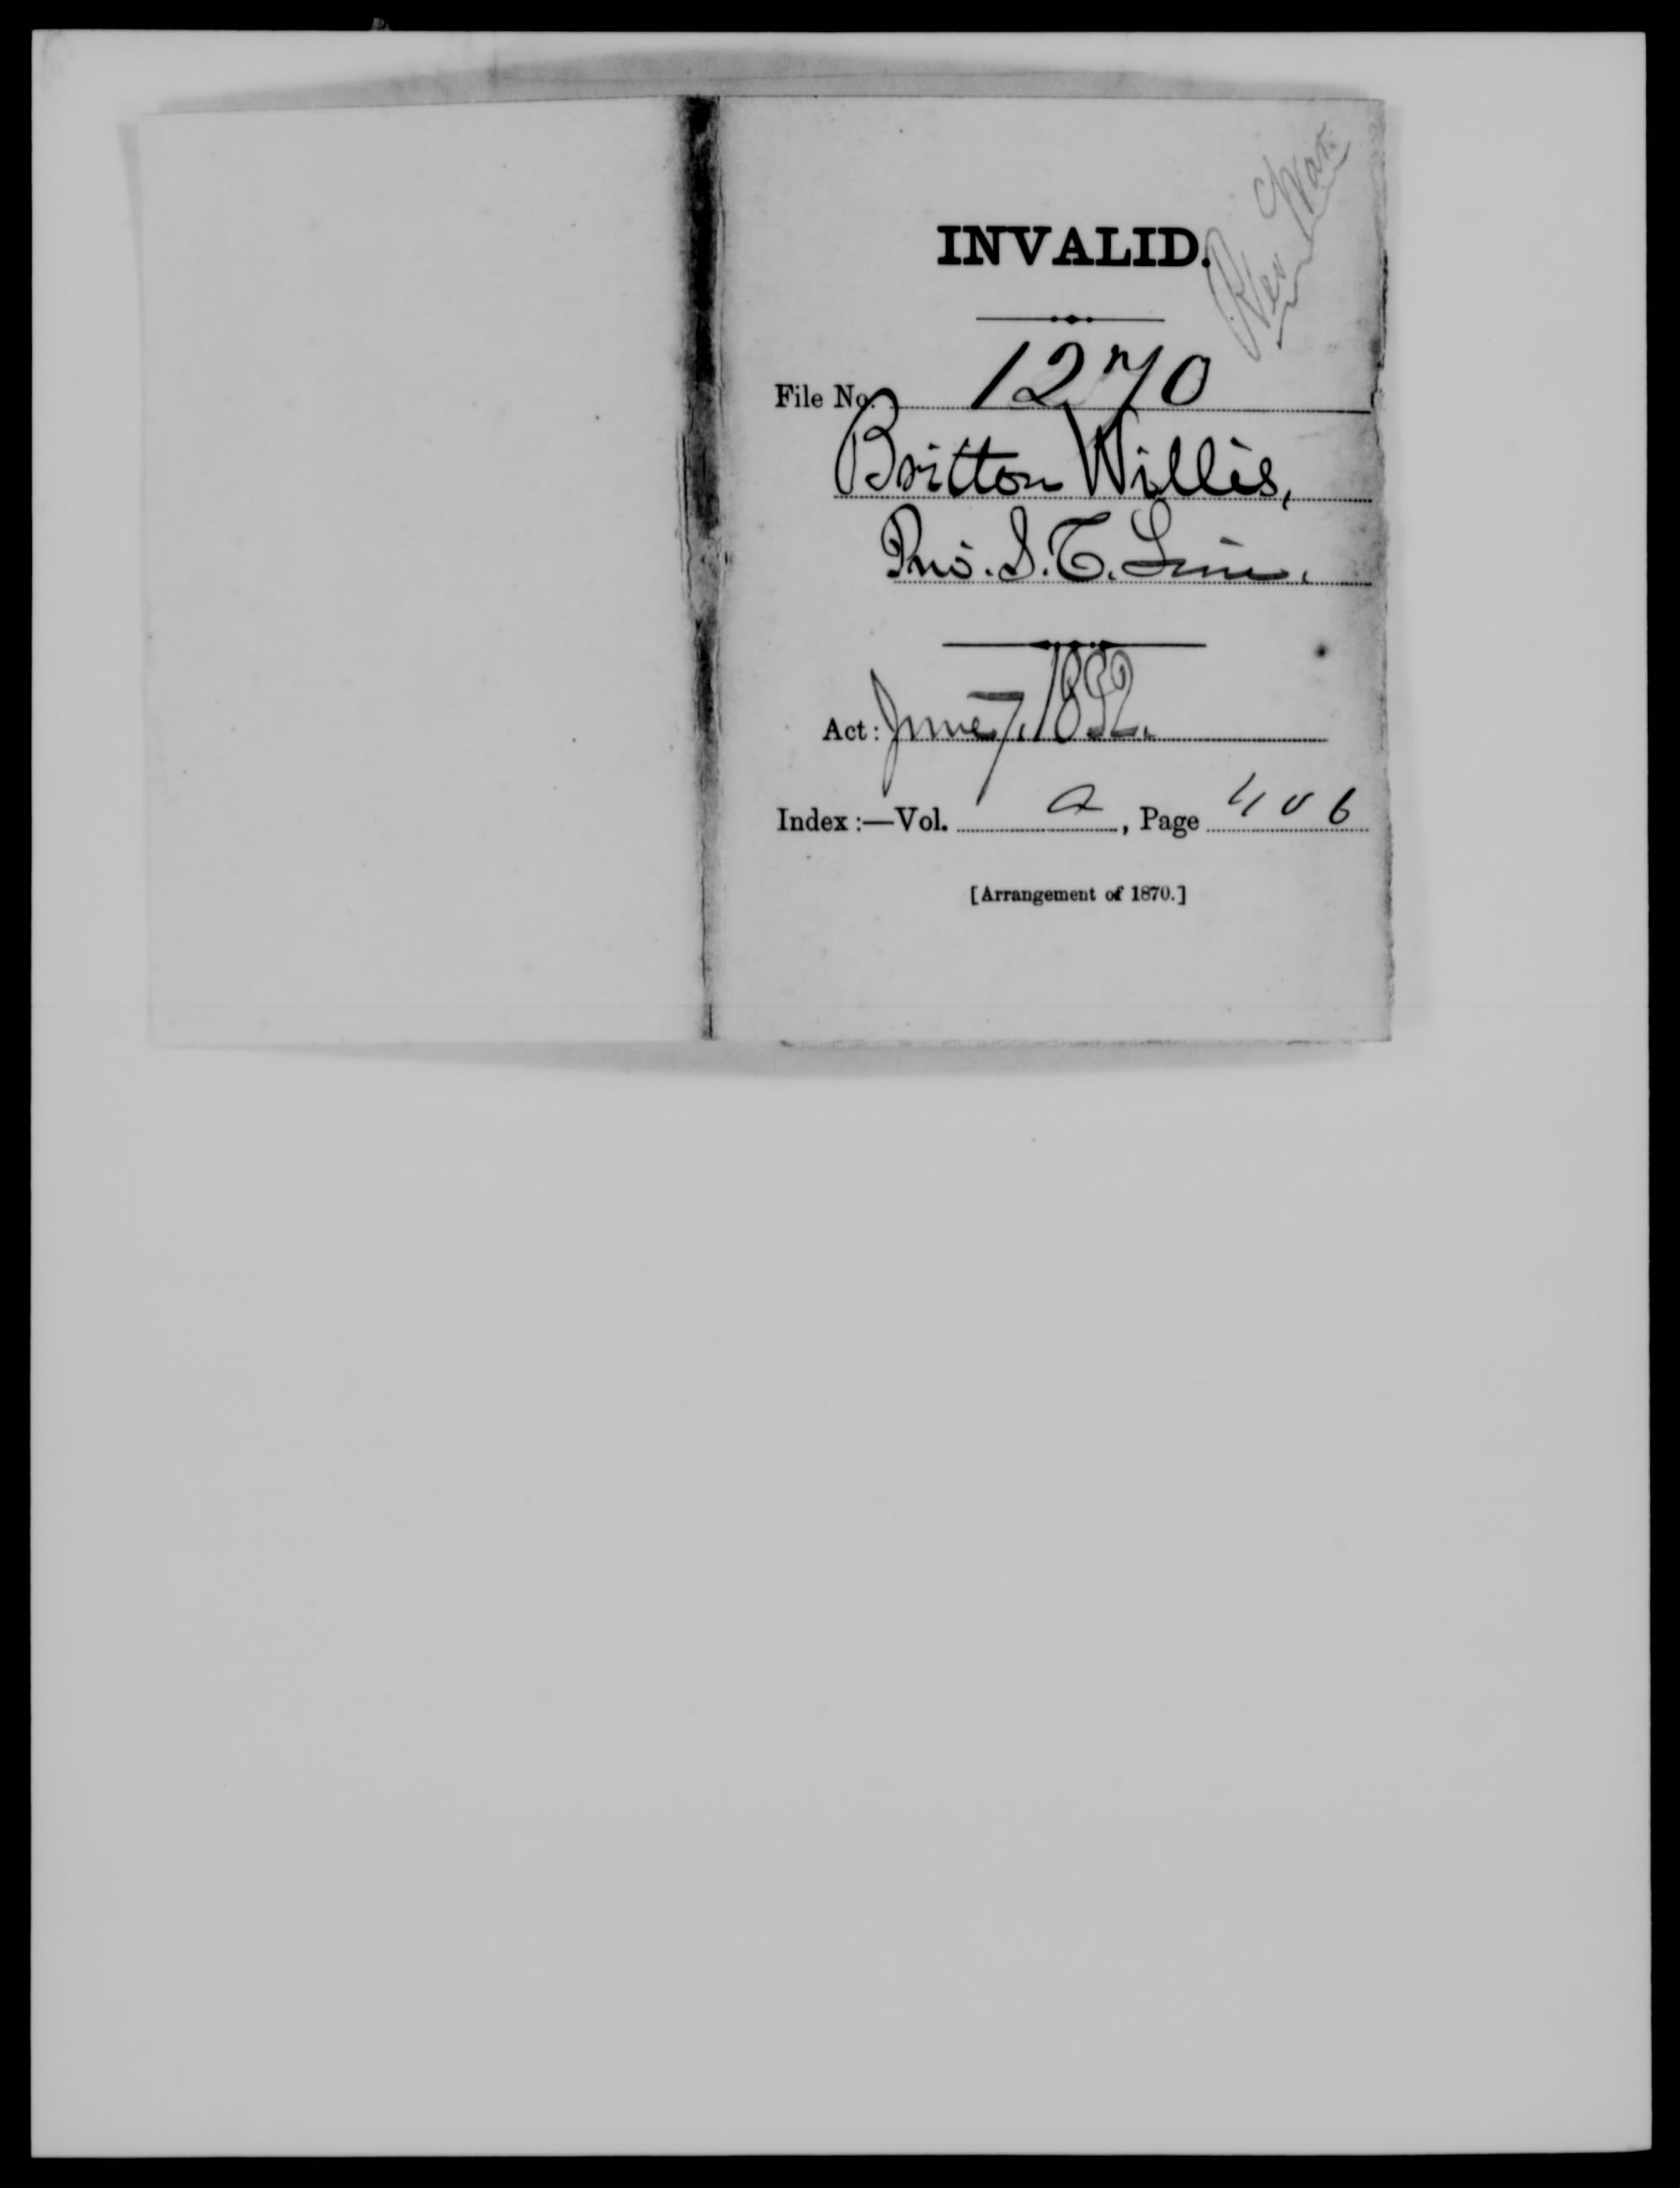 Rev War
INVALID.
File No. 1270
Britton Willis,
Act: June 7, 1832.
Index:—Vol. a, Page 406
[Arrangement of 1870.]